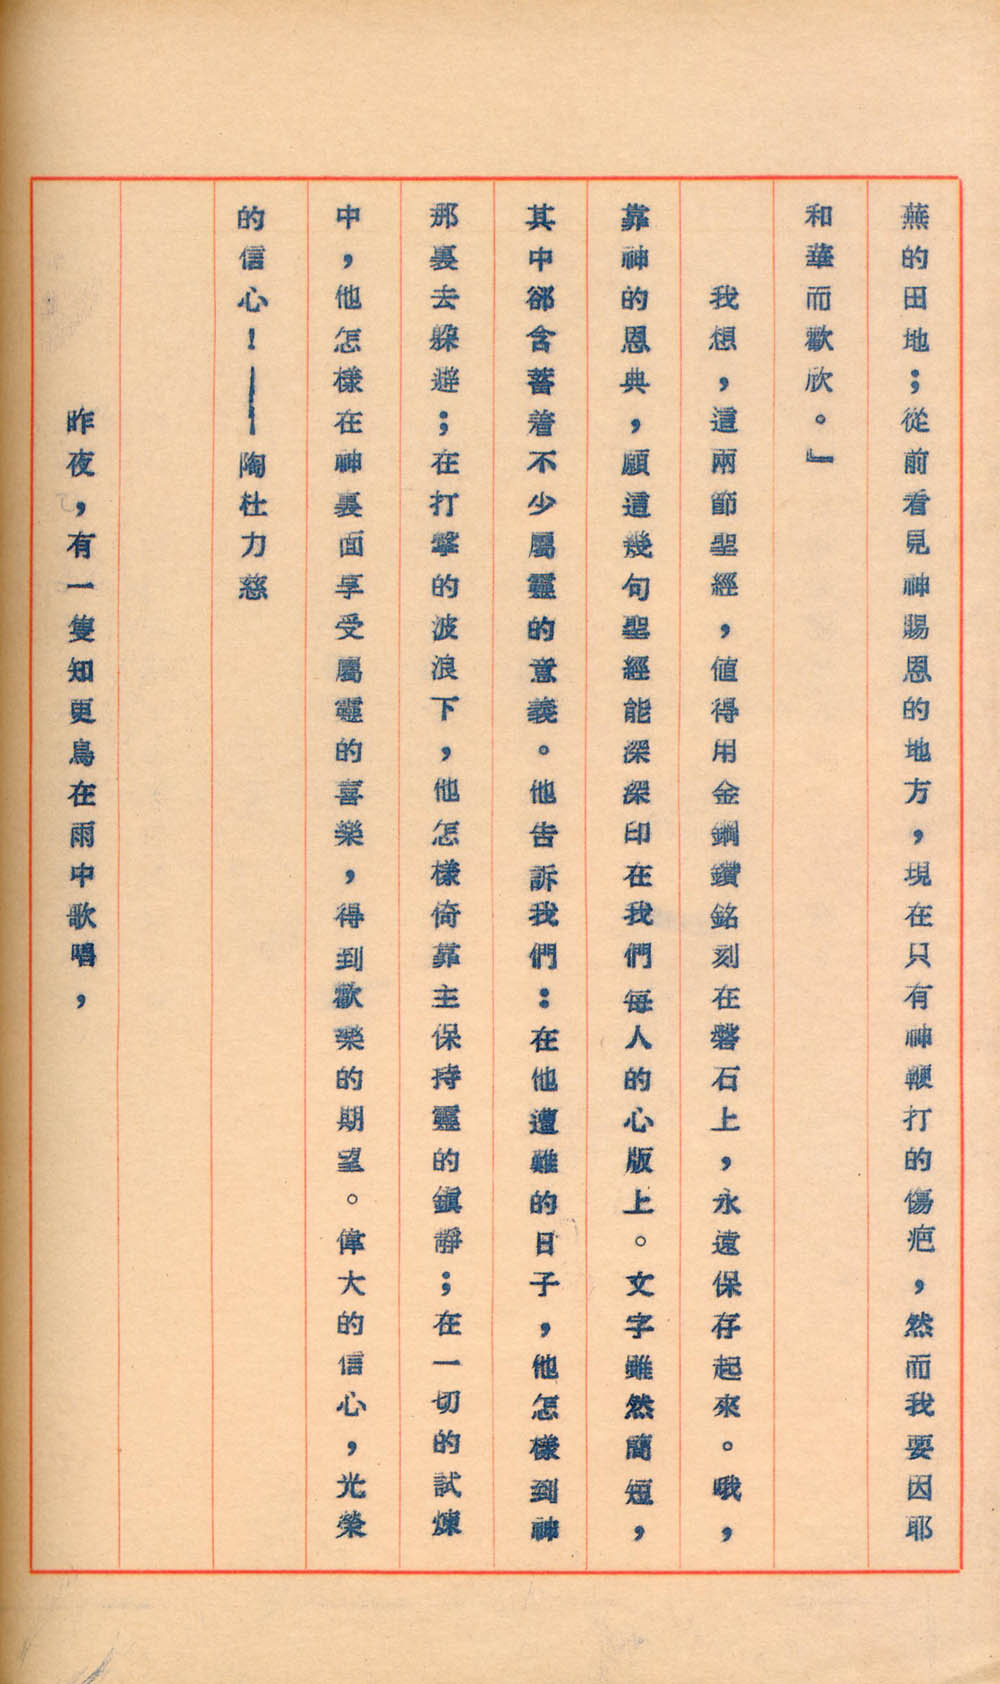 蕪的田地；從前看見神賜恩的地方，現在只有神鞭打的傷疤，然而我要因耶
和華而歡欣。』
我想，這兩節聖經，値得用金鋼鑽銘刻在磐石上，永遠保存起來。哦，
靠神的恩典，願這幾句聖經能深深印在我們每人的心版上。文字雖然簡短，
其中郤含蓄着不少屬靈的意義。他告訴我們：在他遭難的日子，他怎樣到神
那裏去躱避；在打擊的波浪下，他怎樣倚靠主保持靈的鎭靜；在一切的試煉
中，他怎樣在神裏面享受屬靈的喜樂，得到歡樂的期望。偉大的信心，光榮
的信心！——陶杜力慈
昨夜，有一隻知更鳥在雨中歌唱，